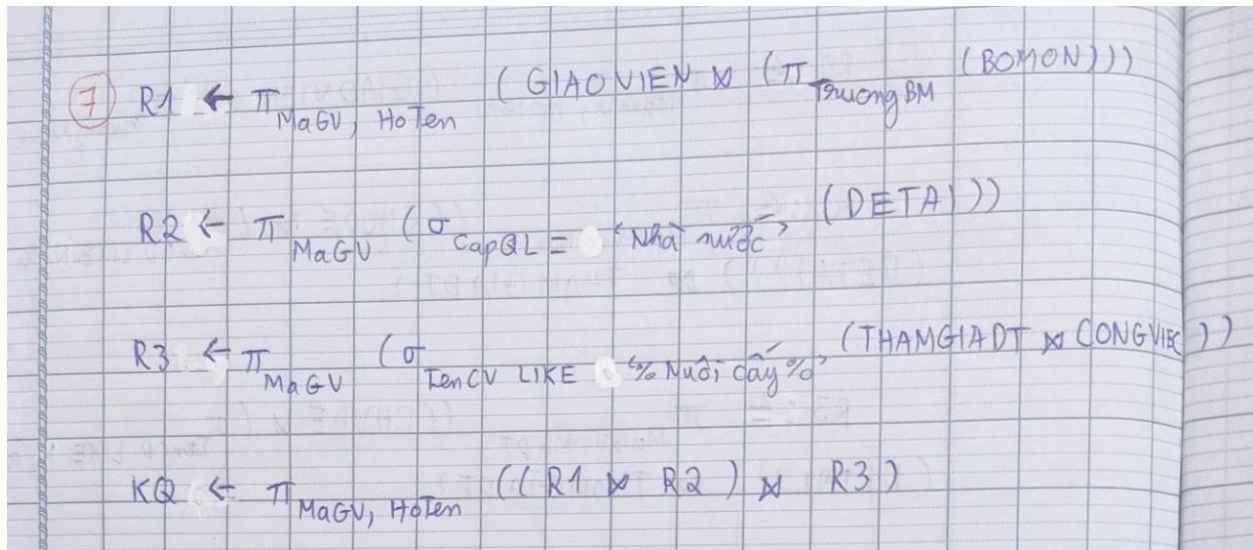 7 R1 ← π MaGV, HoTen (GIAOVIEN ⋈ (π TruongBM (BOMON)))
R2 ← π MaGV (σ CapQL = 'Nhà nước' (DETAI))
R3 ← π MaGV (σ TenCV LIKE '%Nuôi cấy%' (THAMGIADT ⋈ CONGVIEC))
KQ ← π MaGV, HoTen ((R1 ⋈ R2) ⋈ R3)